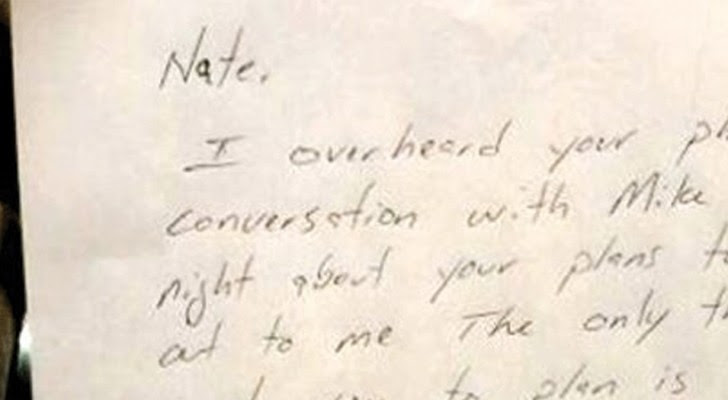 Nate.
I overheard your
conversation with Mike
night about your plans
out to me The only
to plan is